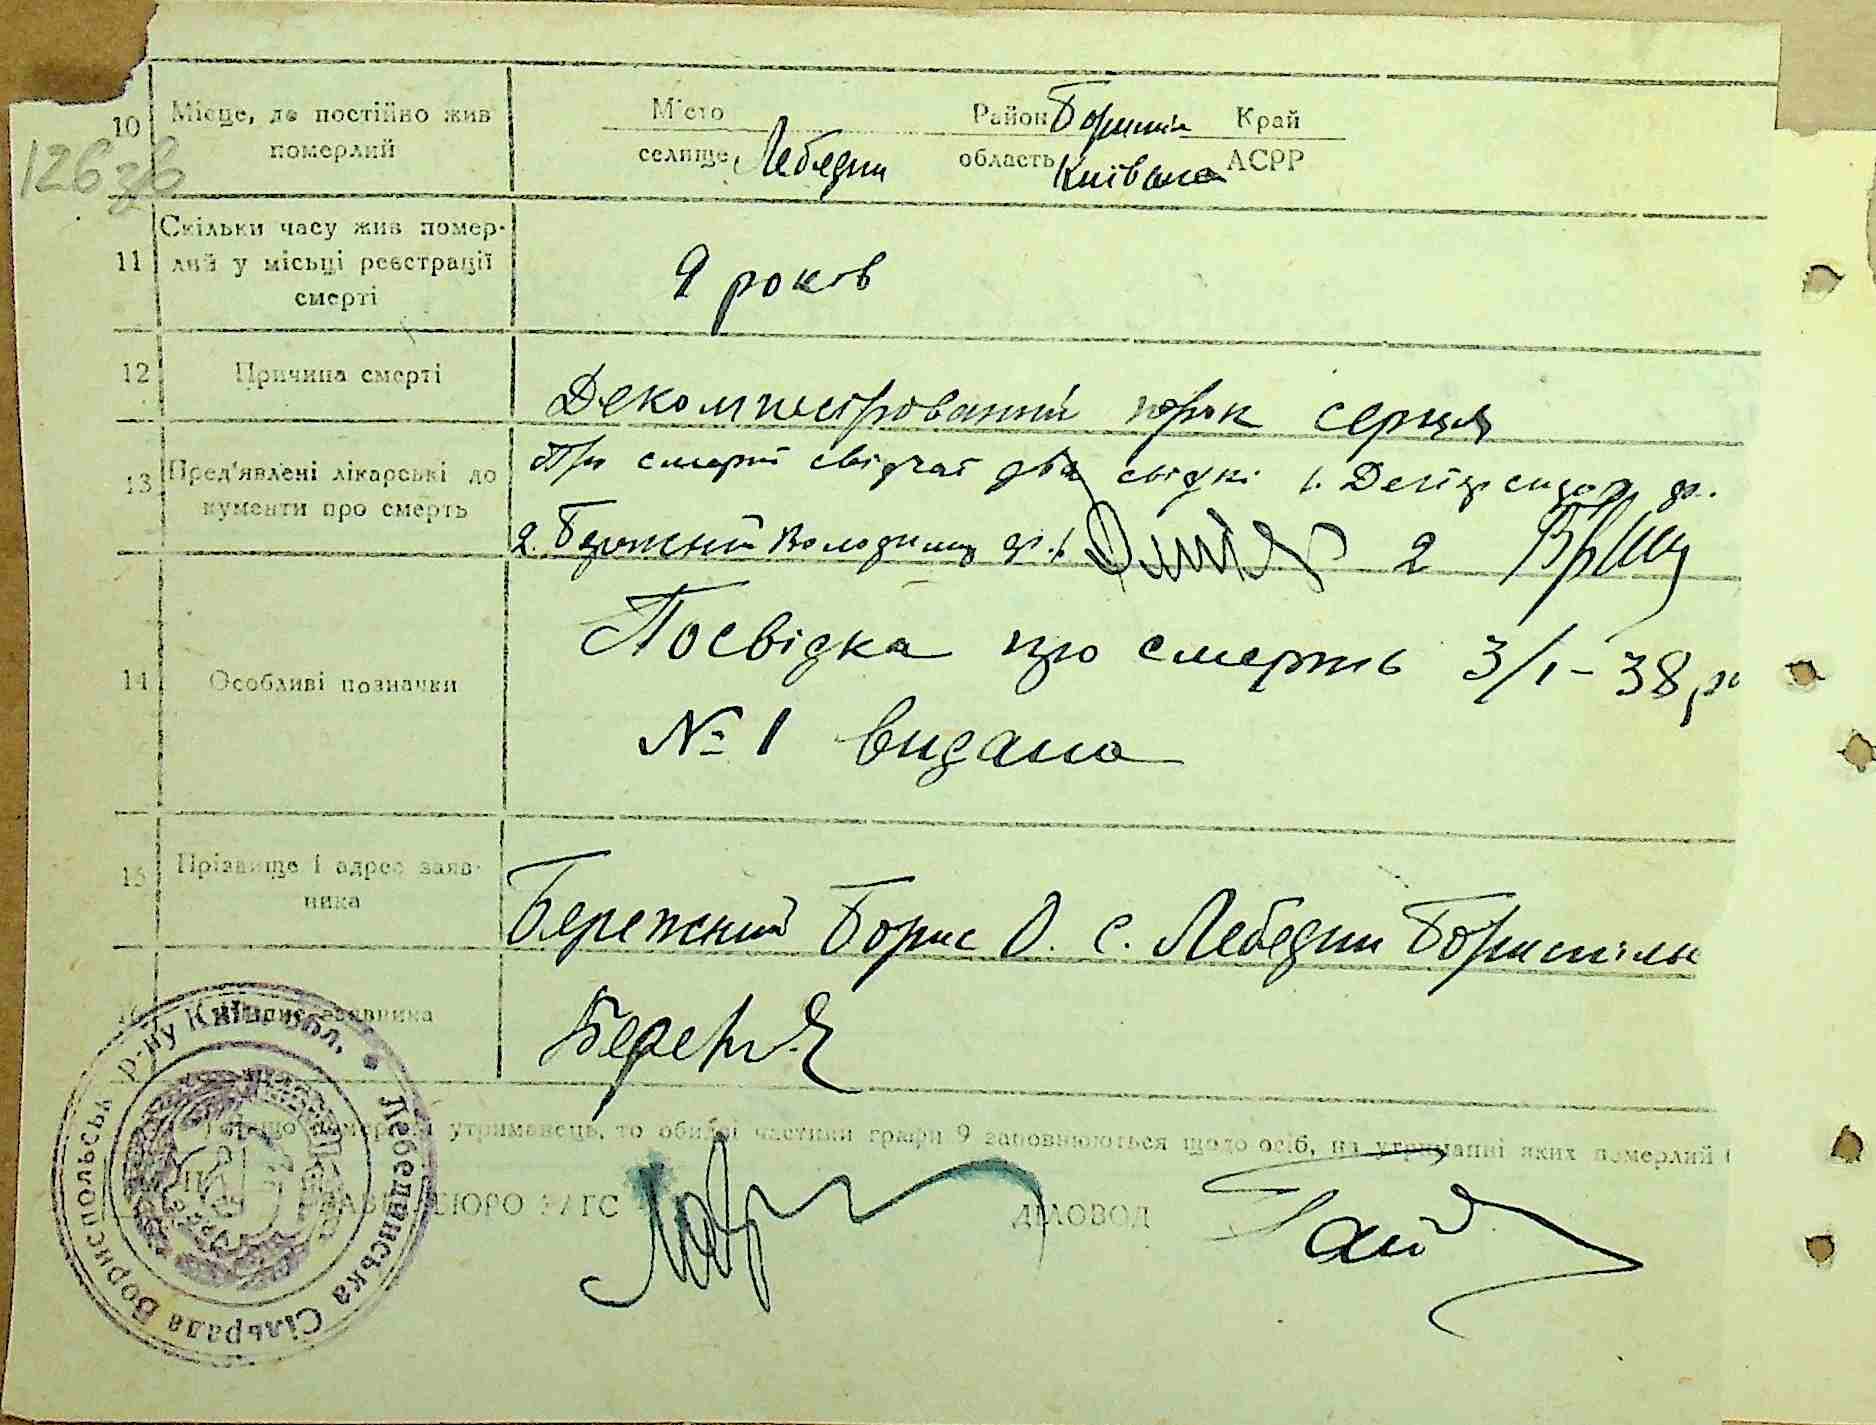 126 зв
10 Місце, де постійно жив померлий
Місто Район Бориспіл Край
селище Лебедин область Київська АСРР
11 Скільки часу жив помер-
лий у місьці реєстрації
смерті
9 років
12 Причина смерті
Декомпесірований порок серця
13 Пред'явлені лікарські до
кументи про смерть
При смерті свідчат два свідкі 1.
2. Бережний Володимир 2
14 Особливі позначки
Посвідка про смерть 3/I-38 р
№ 1 видана
15 Прізвище і адрес заяв-
ника
Бережний Борис О. с. Лебедин Бориспільс
16 Підпис заявника
Береж
Якщо померлий утриманець, то обидві частини графи 9 заповнюються щодо осіб, на утриманні яких померлий
ЗАВ. БЮРО ЗАГС
ДІЛОВОД Гай
Лебединська Сільрада Бориспольськ. р-ну Київ. обл.